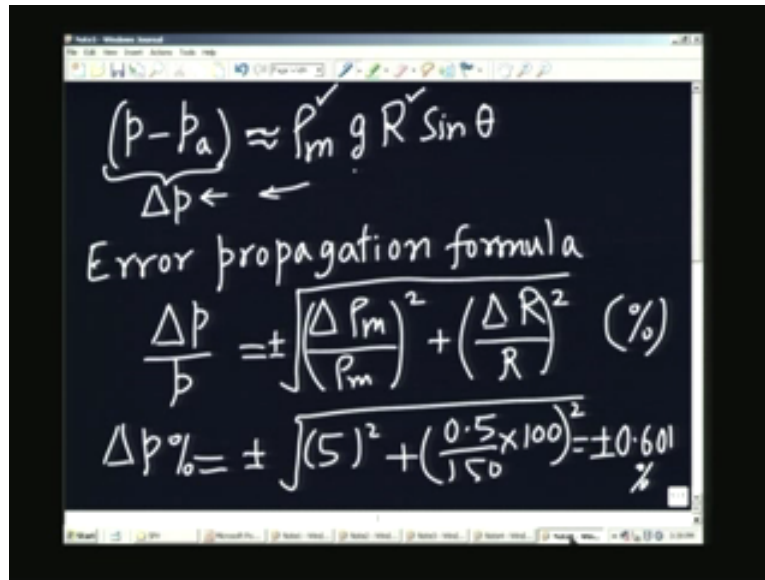 Note5 - Windows Journal
File Edit View Insert Actions Tools Help
(p - pa) ≈ ρm g R Sin θ
Δp ← ←
Error propagation formula
Δp/p = ± √((Δρm/ρm)² + (ΔR/R)²) (%)
Δp% = ± √((5)² + (0.5/150 × 100)²) = ±0.601
%
Start